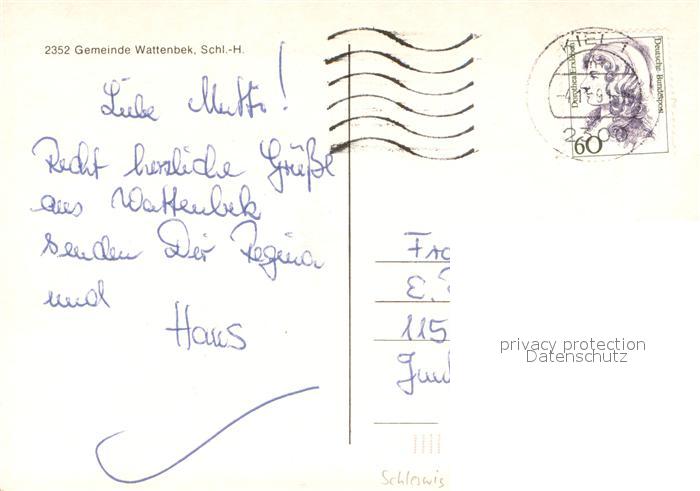 2352 Gemeinde Wattenbek, Schl.-H.
Liebe Mutti!
Recht herzliche Grüße
aus Wattenbek
senden Dir Regina
und
Hans
KIEL 1
2300
Deutsche Bundespost
Dorothea Erxleben
60
E.
115
privacy protection
Datenschutz
Schleswig